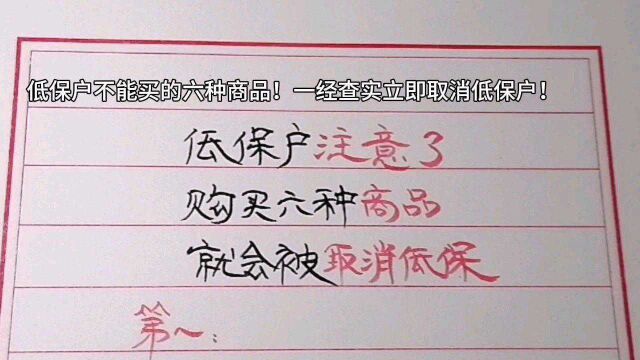 低保户不能买的六种商品！一经查实立即取消低保户！
低保户注意了
购买六种商品
就会被取消低保
第一：